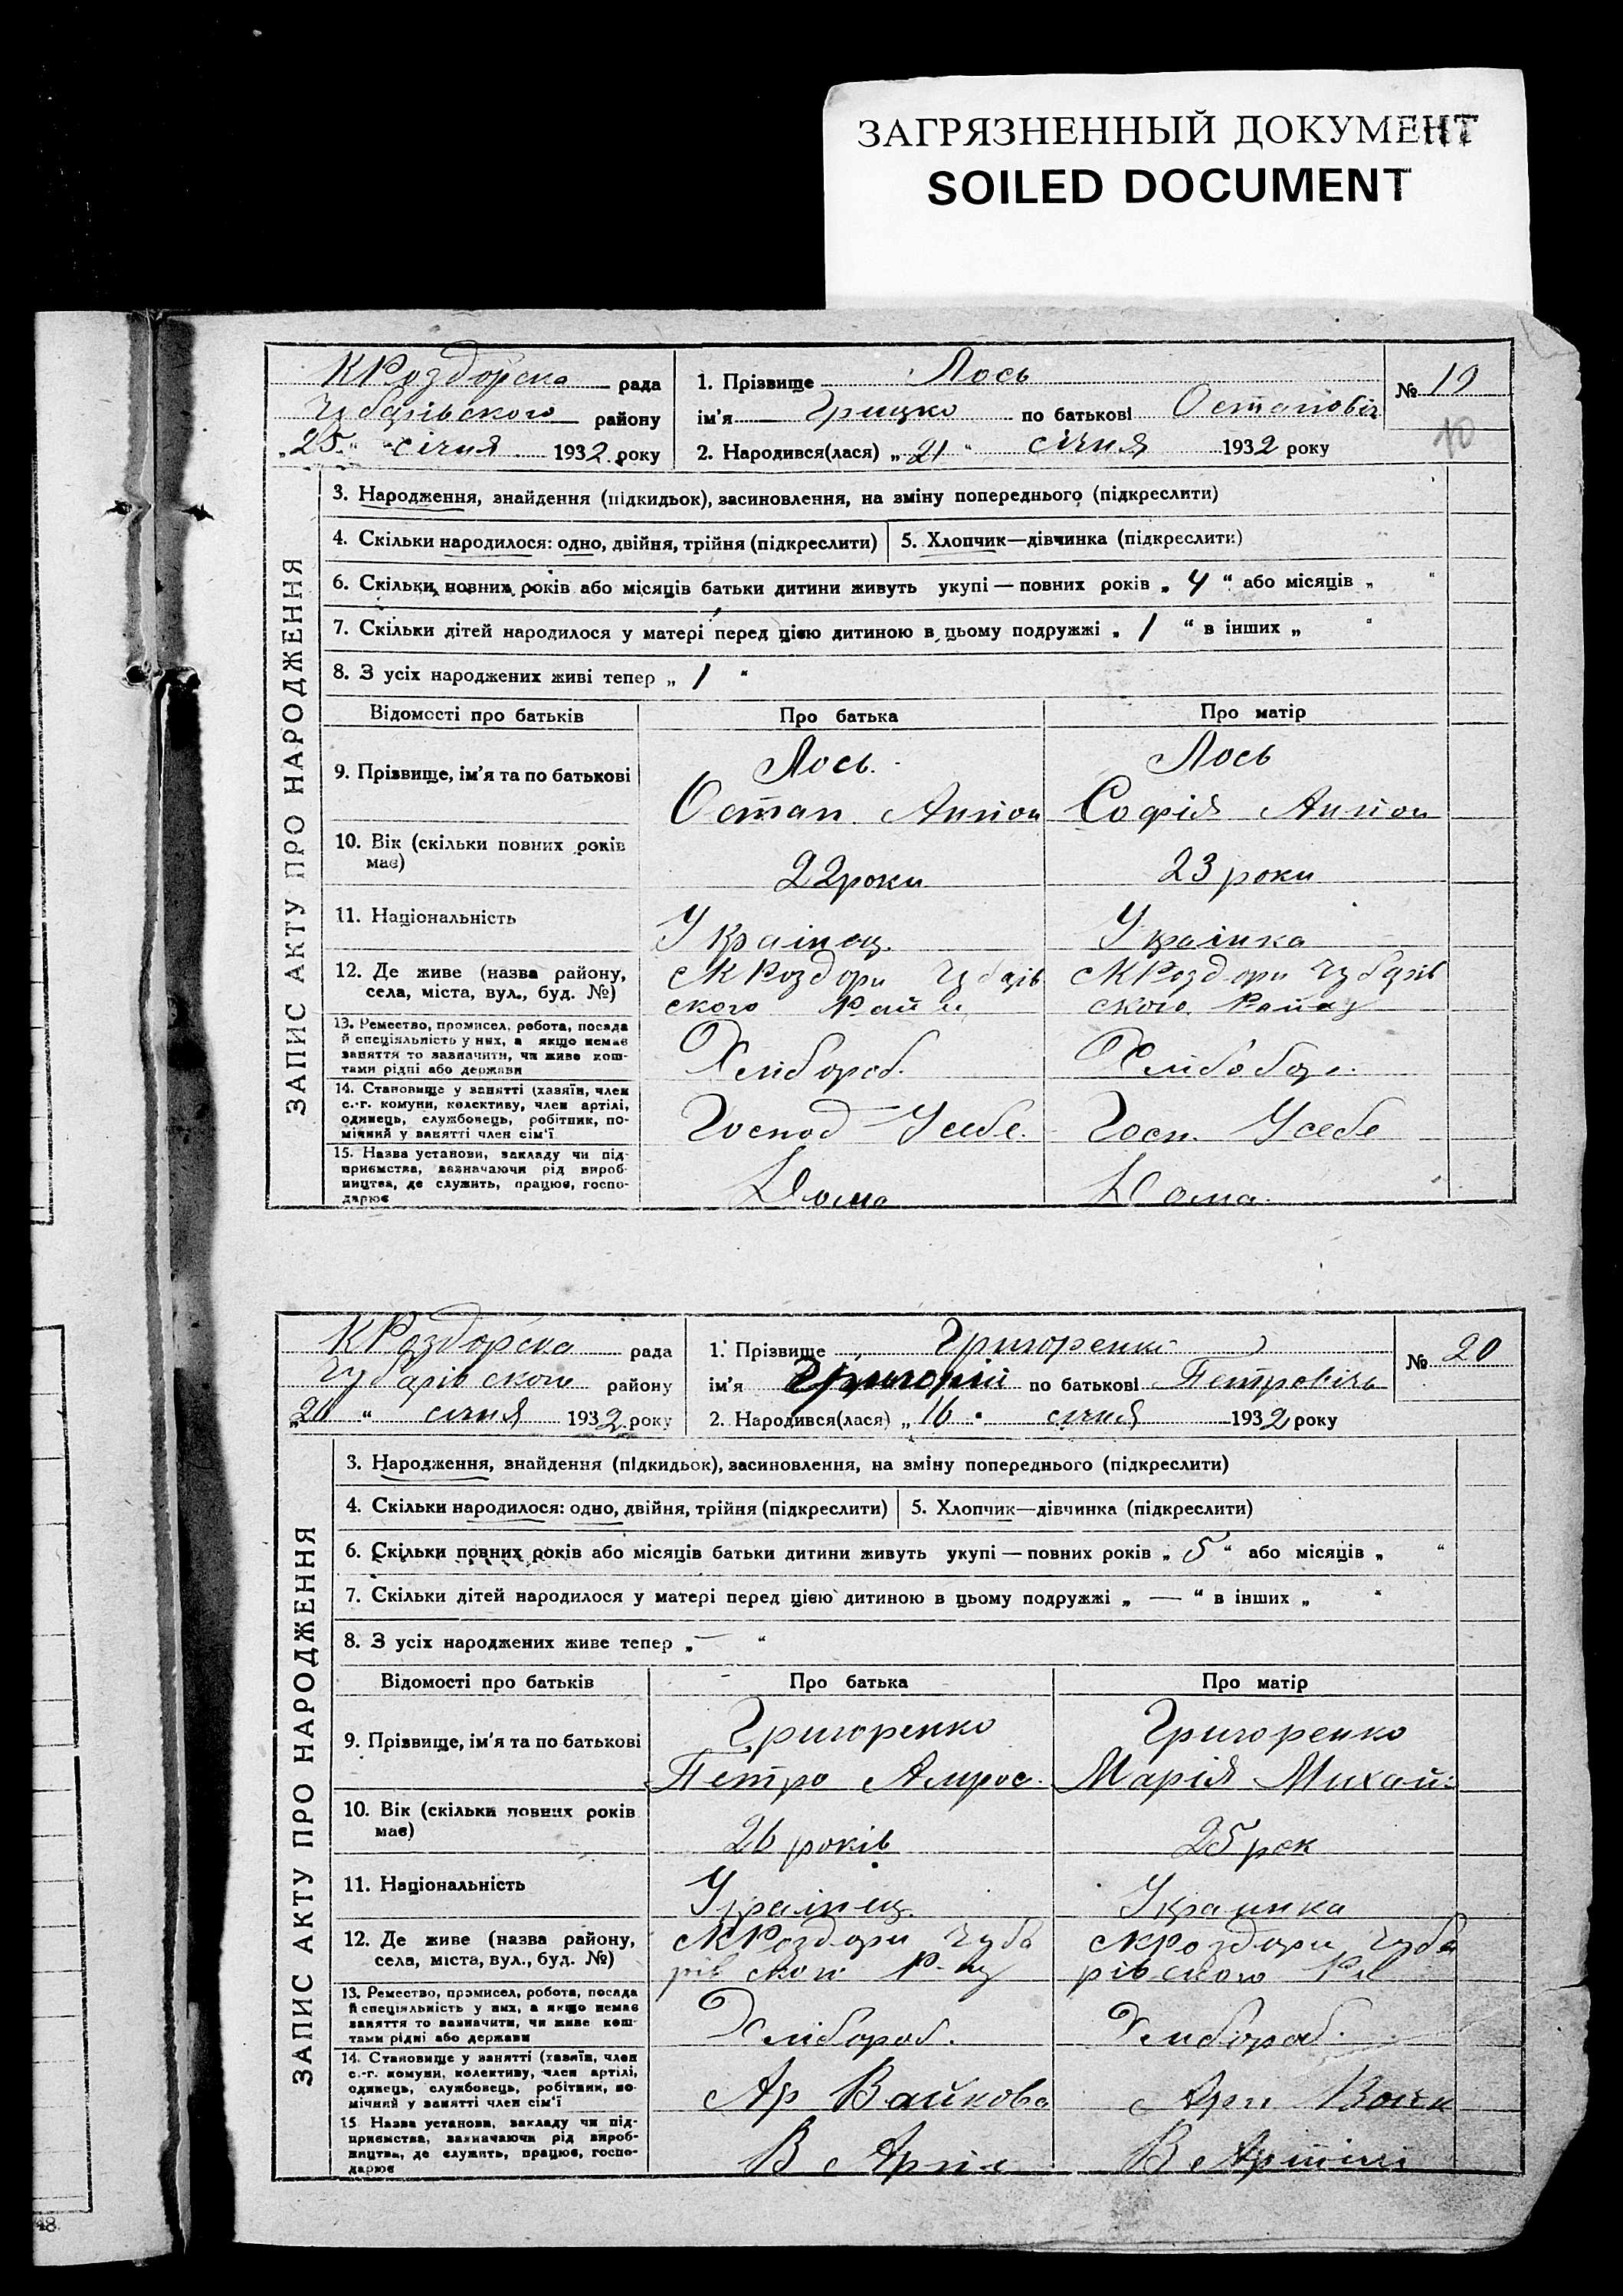 ЗАГРЯЗНЕННЫЙ ДОКУМЕНТ
SOILED DOCUMENT
КРоздорска рада
Чубарівского району
„25“ січня 1932 року
1. Прізвище Лось
ім'я Грицко по батькові Остапович
2. Народився(лася) „21“ січня 1932 року
№ 19
10
ЗАПИС АКТУ ПРО НАРОДЖЕННЯ
3. Народження, знайдення (підкидьок), засиновлення, на зміну попереднього (підкреслити)
4. Скільки народилося: одно, двійня, трійня (підкреслити) 5. Хлопчик—дівчинка (підкреслити)
6. Скільки повних років або місяців батьки дитини живуть укупі — повних років „4“ або місяців „ “
7. Скільки дітей народилося у матері перед цією дитиною в цьому подружжі „1“ в інших „ “
8. З усіх народжених живі тепер „1“
Відомості про батьків Про батька Про матір
9. Прізвище, ім'я та по батькові
Лось Лось
Остап Антон Софія Антон
10. Вік (скільки повних років
має)
22 роки 23 роки
11. Національність
Українец. Українка
12. Де живе (назва району,
села, міста, вул., буд. №)
с КРоздори Чубарів с КРоздори Чубарів
ского Райну ского Району
13. Ремество, промисел, робота, посада
й спеціяльність у них, а якщо немає
заняття то зазначити, чи живе кош-
тами рідні або держави
Хлібороб.
14. Становище у занятті (хазяїн, член
с.-г. комуни, колективу, член артілі,
одинець, службовець, робітник, по-
мічний у занятті член сім'ї
Господ Усебе. Госп. Усебе
15. Назва установи, закладу чи під-
приємства, зазначаючи рід вироб-
ництва, де служить, працює, госпо-
дарює
Дома Дома.
КРоздорска рада
Чубарівского району
„26“ січня 1932 року
1. Прізвище Григоренко
ім'я Григорій по батькові Петрович
2. Народився(лася) „16“ січня 1932 року
№ 20
ЗАПИС АКТУ ПРО НАРОДЖЕННЯ
3. Народження, знайдення (підкидьок), засиновлення, на зміну попереднього (підкреслити)
4. Скільки народилося: одно, двійня, трійня (підкреслити) 5. Хлопчик—дівчинка (підкреслити)
6. Скільки повних років або місяців батьки дитини живуть укупі — повних років „5“ або місяців „ “
7. Скільки дітей народилося у матері перед цією дитиною в цьому подружжі „—“ в інших „ “
8. З усіх народжених живе тепер „—“
Відомості про батьків Про батька Про матір
9. Прізвище, ім'я та по батькові
Григоренко Григоренко
Петро Амрос. Марія Михай:
10. Вік (скільки повних років
має)
26 років 25 рок
11. Національність
Українец. Украинка
12. Де живе (назва району,
села, міста, вул., буд. №)
с КРоздори Чуба с КРоздори Чуба
рівского Р-ну рівского
13. Ремество, промисел, робота, посада
й спеціяльність у них, а якщо немає
заняття то зазначити, чи живе кош-
тами рідні або держави
Хлібороб. Хлібороб.
14. Становище у занятті (хазяїн, член
с.-г. комуни, колективу, член артілі,
одинець, службовець, робітник, по-
мічний у занятті член сім'ї
Ар Вайкова
15. Назва установи, закладу чи під-
приємства, зазначаючи рід вироб-
ництва, де служить, працює, госпо-
дарює
В В Артілі
48